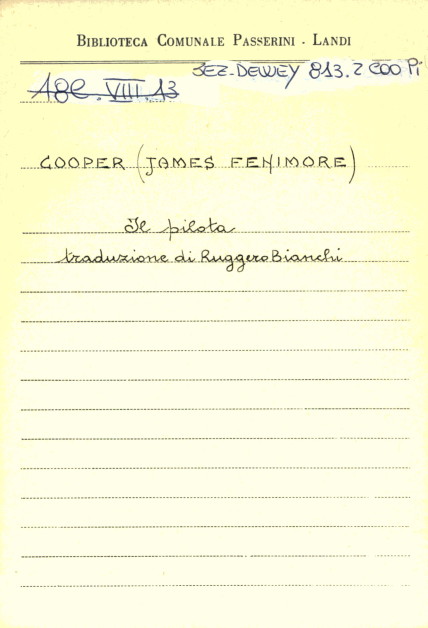 BIBLIOTECA COMUNALE PASSERINI - LANDI
SEZ-DEWEY 813.2 COO Pi
18C.VIII.13
COOPER (JAMES FENIMORE)
Il pilota
traduzione di Ruggero Bianchi